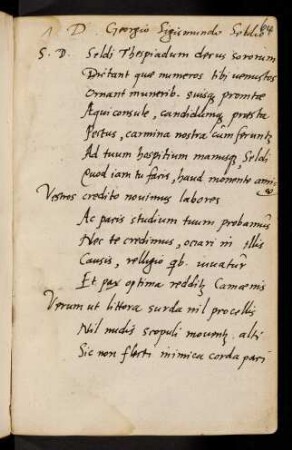 D. Georgio Sigismundo Seldio 64
S. D. Seldi Thespiadum decus sororum
Ditant quae numeros tibi venustos
Ornant munerib. suisq; promtae
Aequi consule, candidumq; praesta
Pectus, carmina nostra cum feruntz
Ad tuum hospitium manusq; Seldi
Quod iam tu facis, haud monente
Vestros credito novimus labores
Ac pacis studium tuum probamus
Nec te credimus, ociari in illis
Causis, relligio qb. iuvatur
Et pax optima redditz Camoenis
Verum ut littora surda nil procellis
Nil nudis scopuli moventz alti
Sic non flecti inimica corda pari